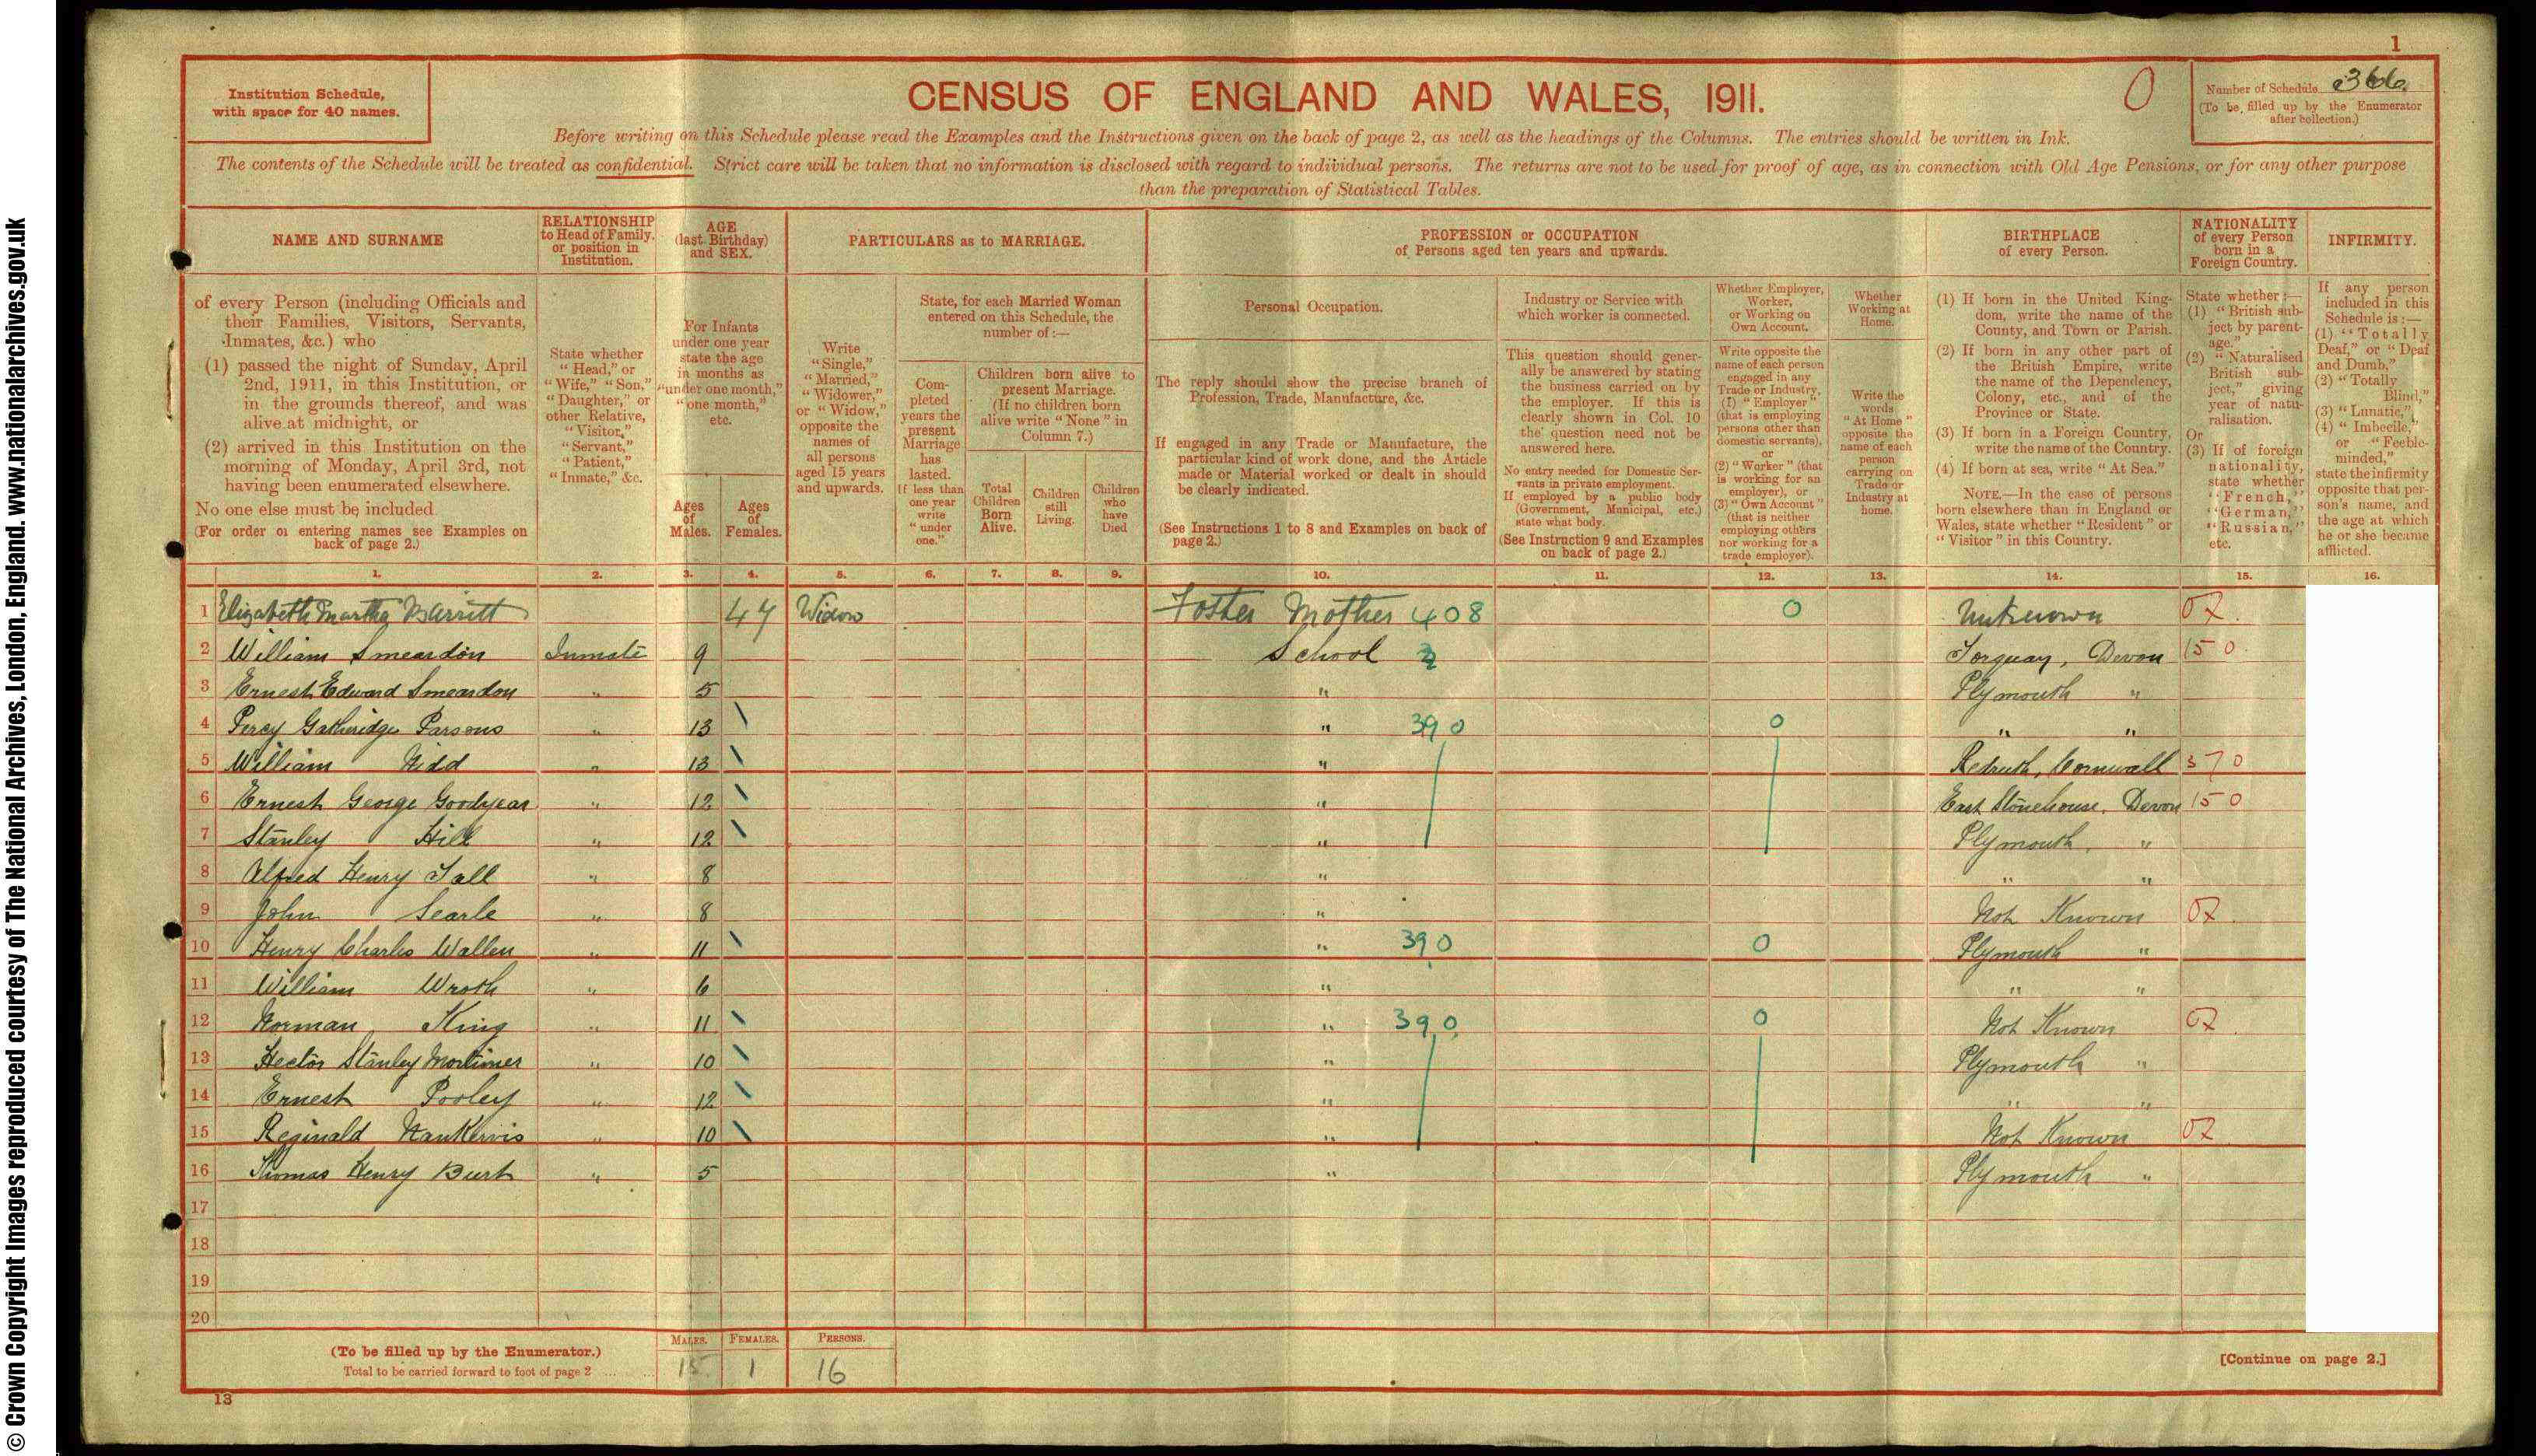 1
Institution Schedule,
with space for 40 names.
CENSUS OF ENGLAND AND WALES, 1911.
0
Number of Schedule 366
(To be filled up by the Enumerator
after collection.)
Before writing on this Schedule please read the Examples and the Instructions given on the back of page 2, as well as the headings of the Columns. The entries should be written in Ink.
The contents of the Schedule will be treated as confidential. Strict care will be taken that no information is disclosed with regard to individual persons. The returns are not to be used for proof of age, as in connection with Old Age Pensions, or for any other purpose
than the preparation of Statistical Tables.
NAME AND SURNAME
of every Person (including Officials and
their Families, Visitors, Servants,
Inmates, &c.) who
(1) passed the night of Sunday, April
2nd, 1911, in this Institution, or
in the grounds thereof, and was
alive at midnight, or
(2) arrived in this Institution on the
morning of Monday, April 3rd, not
having been enumerated elsewhere.
No one else must be included
(For order of entering names see Examples on
back of page 2.)
RELATIONSHIP
to Head of Family,
or position in
Institution.
State whether
"Head," or
"Wife," "Son,"
"Daughter," or
other Relative,
"Visitor,"
"Servant,"
"Patient,"
"Inmate," &c.
AGE
(last Birthday)
and SEX.
For Infants
under one year
state the age
in months as
"under one month,"
"one month,"
etc.
Ages
of
Males.
Ages
of
Females.
PARTICULARS as to MARRIAGE.
Write
"Single,"
"Married,"
"Widower,"
or "Widow,"
opposite the
names of
all persons
aged 15 years
and upwards.
State, for each Married Woman
entered on this Schedule, the
number of:—
Com-
pleted
years the
present
Marriage
has
lasted.
If less than
one year
write
"under
one."
Children born alive to
present Marriage.
(If no children born
alive write "None" in
Column 7.)
Total
Children
Born
Alive.
Children
still
Living.
Children
who
have
Died
PROFESSION or OCCUPATION
of Persons aged ten years and upwards.
Personal Occupation.
The reply should show the precise branch of
Profession, Trade, Manufacture, &c.
If engaged in any Trade or Manufacture, the
particular kind of work done, and the Article
made or Material worked or dealt in should
be clearly indicated.
(See Instructions 1 to 8 and Examples on back of
page 2.)
Industry or Service with
which worker is connected.
This question should gener-
ally be answered by stating
the business carried on by
the employer. If this is
clearly shown in Col. 10
the question need not be
answered here.
No entry needed for Domestic Ser-
vants in private employment.
If employed by a public body
(Government, Municipal, etc.)
state what body.
(See Instruction 9 and Examples
on back of page 2.)
Whether Employer,
Worker,
or Working on
Own Account.
Write opposite the
name of each person
engaged in any
Trade or Industry,
(1) "Employer"
(that is employing
persons other than
domestic servants),
or
(2) "Worker" (that
is working for an
employer), or
(3) "Own Account"
(that is neither
employing others
nor working for a
trade employer).
Whether
Working at
Home.
Write the
words
"At Home"
opposite the
name of each
person
carrying on
Trade or
Industry at
home.
BIRTHPLACE
of every Person.
(1) If born in the United King-
dom, write the name of the
County, and Town or Parish.
(2) If born in any other part of
the British Empire, write
the name of the Dependency,
Colony, etc., and of the
Province or State.
(3) If born in a Foreign Country,
write the name of the Country.
(4) If born at sea, write "At Sea."
NOTE.—In the case of persons
born elsewhere than in England or
Wales, state whether "Resident" or
"Visitor" in this Country.
NATIONALITY
of every Person
born in a
Foreign Country.
State whether:—
(1) "British sub-
ject by parent-
age."
(2) "Naturalised
British sub-
ject," giving
year of natu-
ralisation.
Or
(3) If of foreign
nationality,
state whether
"French,"
"German,"
"Russian,"
etc.
INFIRMITY.
If any person
included in this
Schedule is:—
(1) "Totally
Deaf," or "Deaf
and Dumb,"
(2) "Totally
Blind,"
(3) "Lunatic,"
(4) "Imbecile,"
or "Feeble-
minded,"
state the infirmity
opposite that per-
son's name, and
the age at which
he or she became
afflicted.
1. 2. 3. 4. 5. 6. 7. 8. 9. 10. 11. 12. 13. 14. 15. 16.
1 Elizabeth Martha Barritt 47 Widow Foster Mother 408 0 Unknown 07
2 William Smeardon Inmate 9 School Torquay, Devon 150
3 Ernest Edward Smeardon " 5 " Plymouth "
4 Percy Gatheridge Parsons " 13 " 390 0 " "
5 William Kidd " 13 " Redruth, Cornwall 370
6 Ernest George Goodyear " 12 " East Stonehouse, Devon 150
7 Stanley Hill " 12 " Plymouth "
8 Alfred Henry Tall " 8 " " "
9 John Searle " 8 " Not Known 07
10 Henry Charles Wallen " 11 " 390 0 Plymouth "
11 William Wroth " 6 " " "
12 Norman King " 11 " 390 0 Not Known 07
13 Hector Stanley Mortimer " 10 " Plymouth "
14 Ernest Pooley " 12 " " "
15 Reginald Nankervis " 10 " Not Known 07
16 Thomas Henry Burt " 5 " Plymouth "
17
18
19
20
(To be filled up by the Enumerator.)
Total to be carried forward to foot of page 2
MALES. FEMALES. PERSONS.
15 1 16
[Continue on page 2.]
13
© Crown Copyright Images reproduced courtesy of The National Archives, London, England. www.nationalarchives.gov.uk